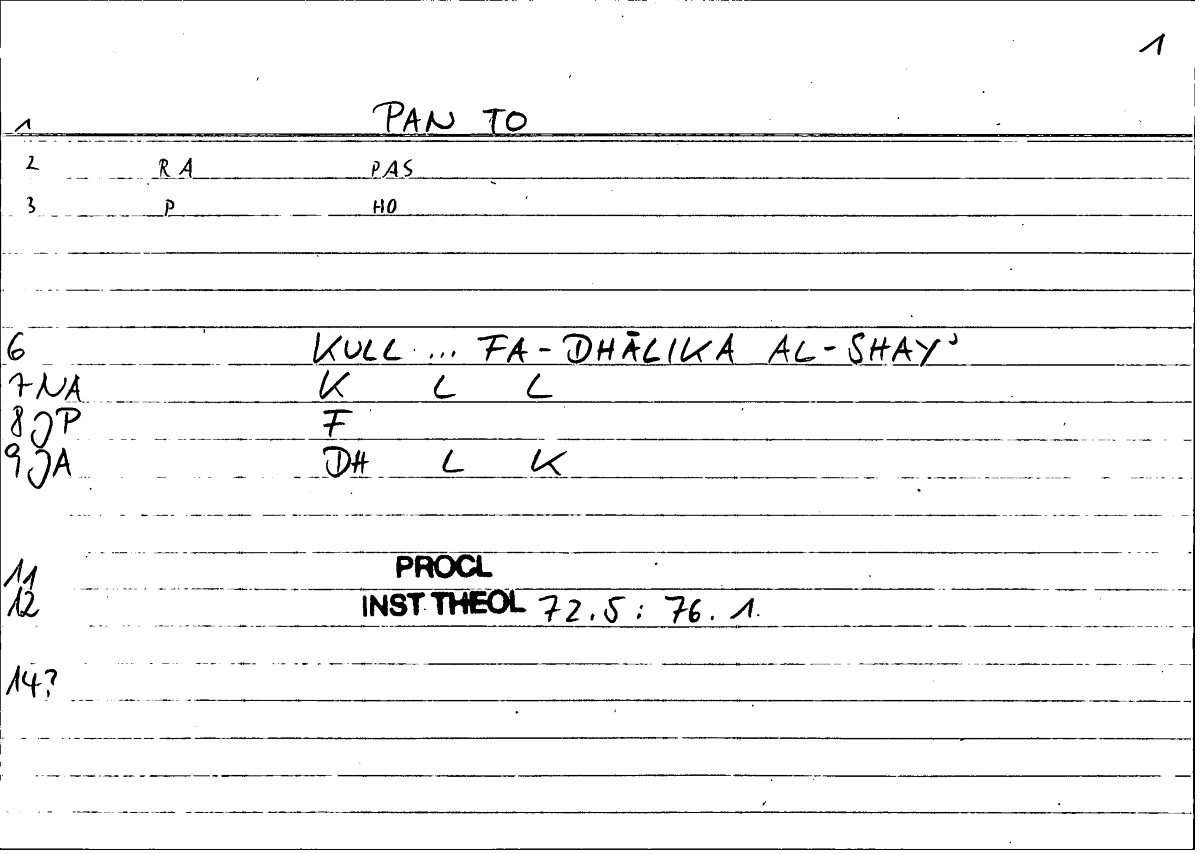 1
1 PAN TO
2 RA PAS
3 P HO
6 KULL ... FA-DHĀLIKA AL-SHAYʾ
7 NA K L L
8 JP F
9 JA DH L K
11 PROCL
12 INST THEOL 72.5: 76.1.
14?